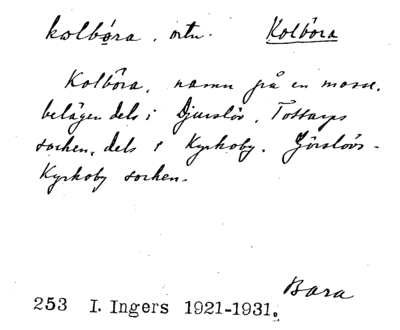 kolbóra. ortn. Kolbôra
Kolbôra, namn på en mosse,
belägen dels i Djurslöv, Tottarps
socken, dels i Kyrkoby, Görslövs-
Kyrkoby socken.
Bara
253 I. Ingers 1921-1931.